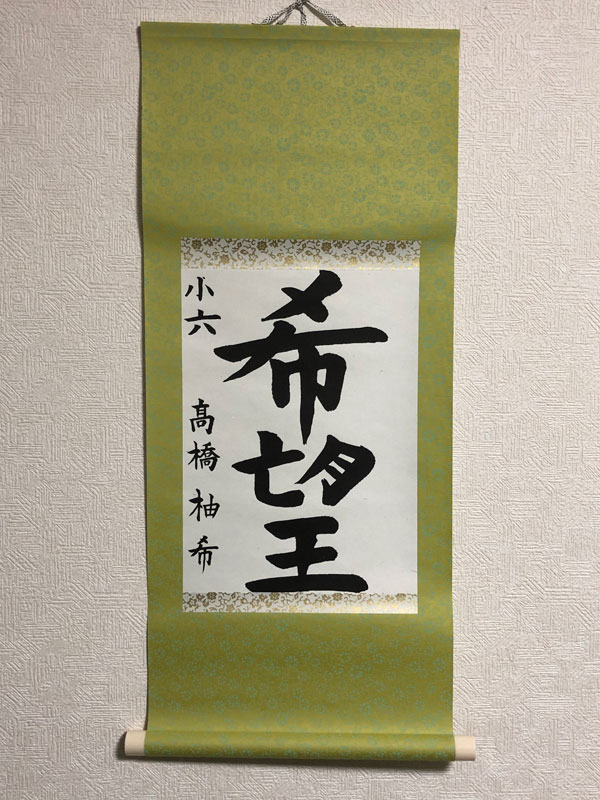 希望
小六 髙橋柚希